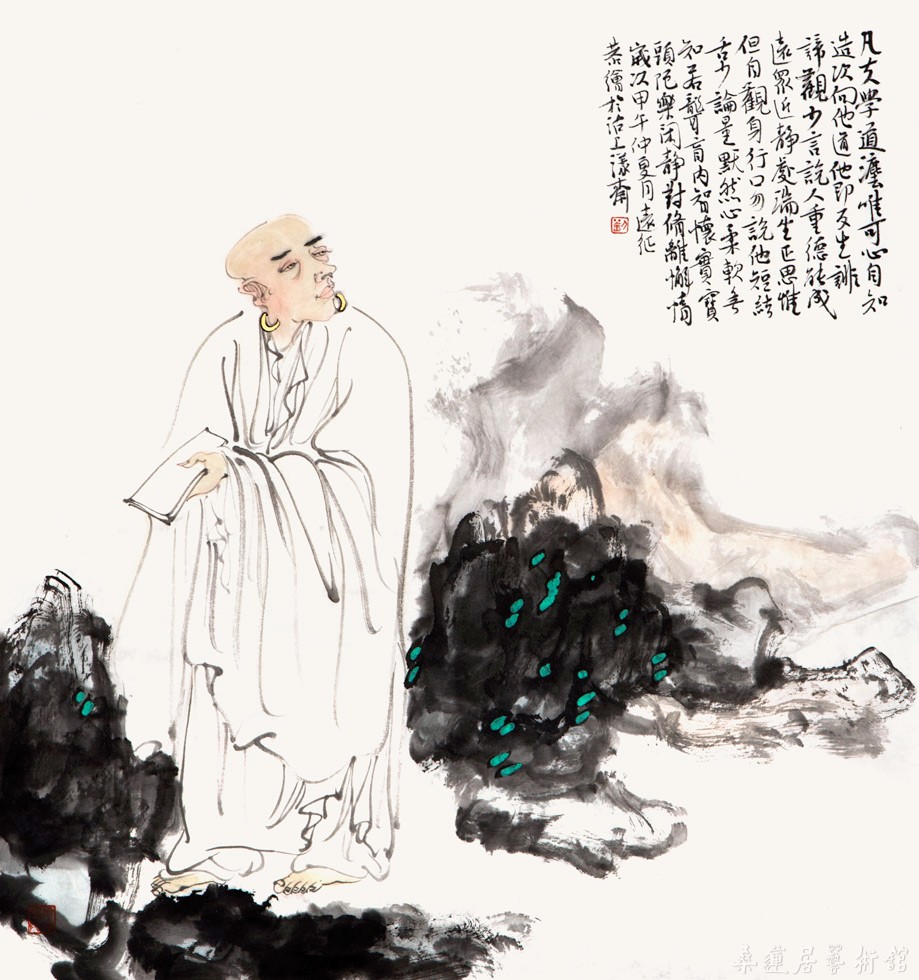 凡夫學道灋唯可心自知
造次向他道他即反生誹
諦觀少言說人重德能成
遠眾近靜處端坐正思惟
但自觀身行口勿說他短結
舌少論量默然心柔軟無
知若聾盲內智懷實寶
頭陀樂閑靜對脩離懈惰
歲次甲午仲夏月遠征
恭繪於沽上漾齋
桑蓮居藝術館